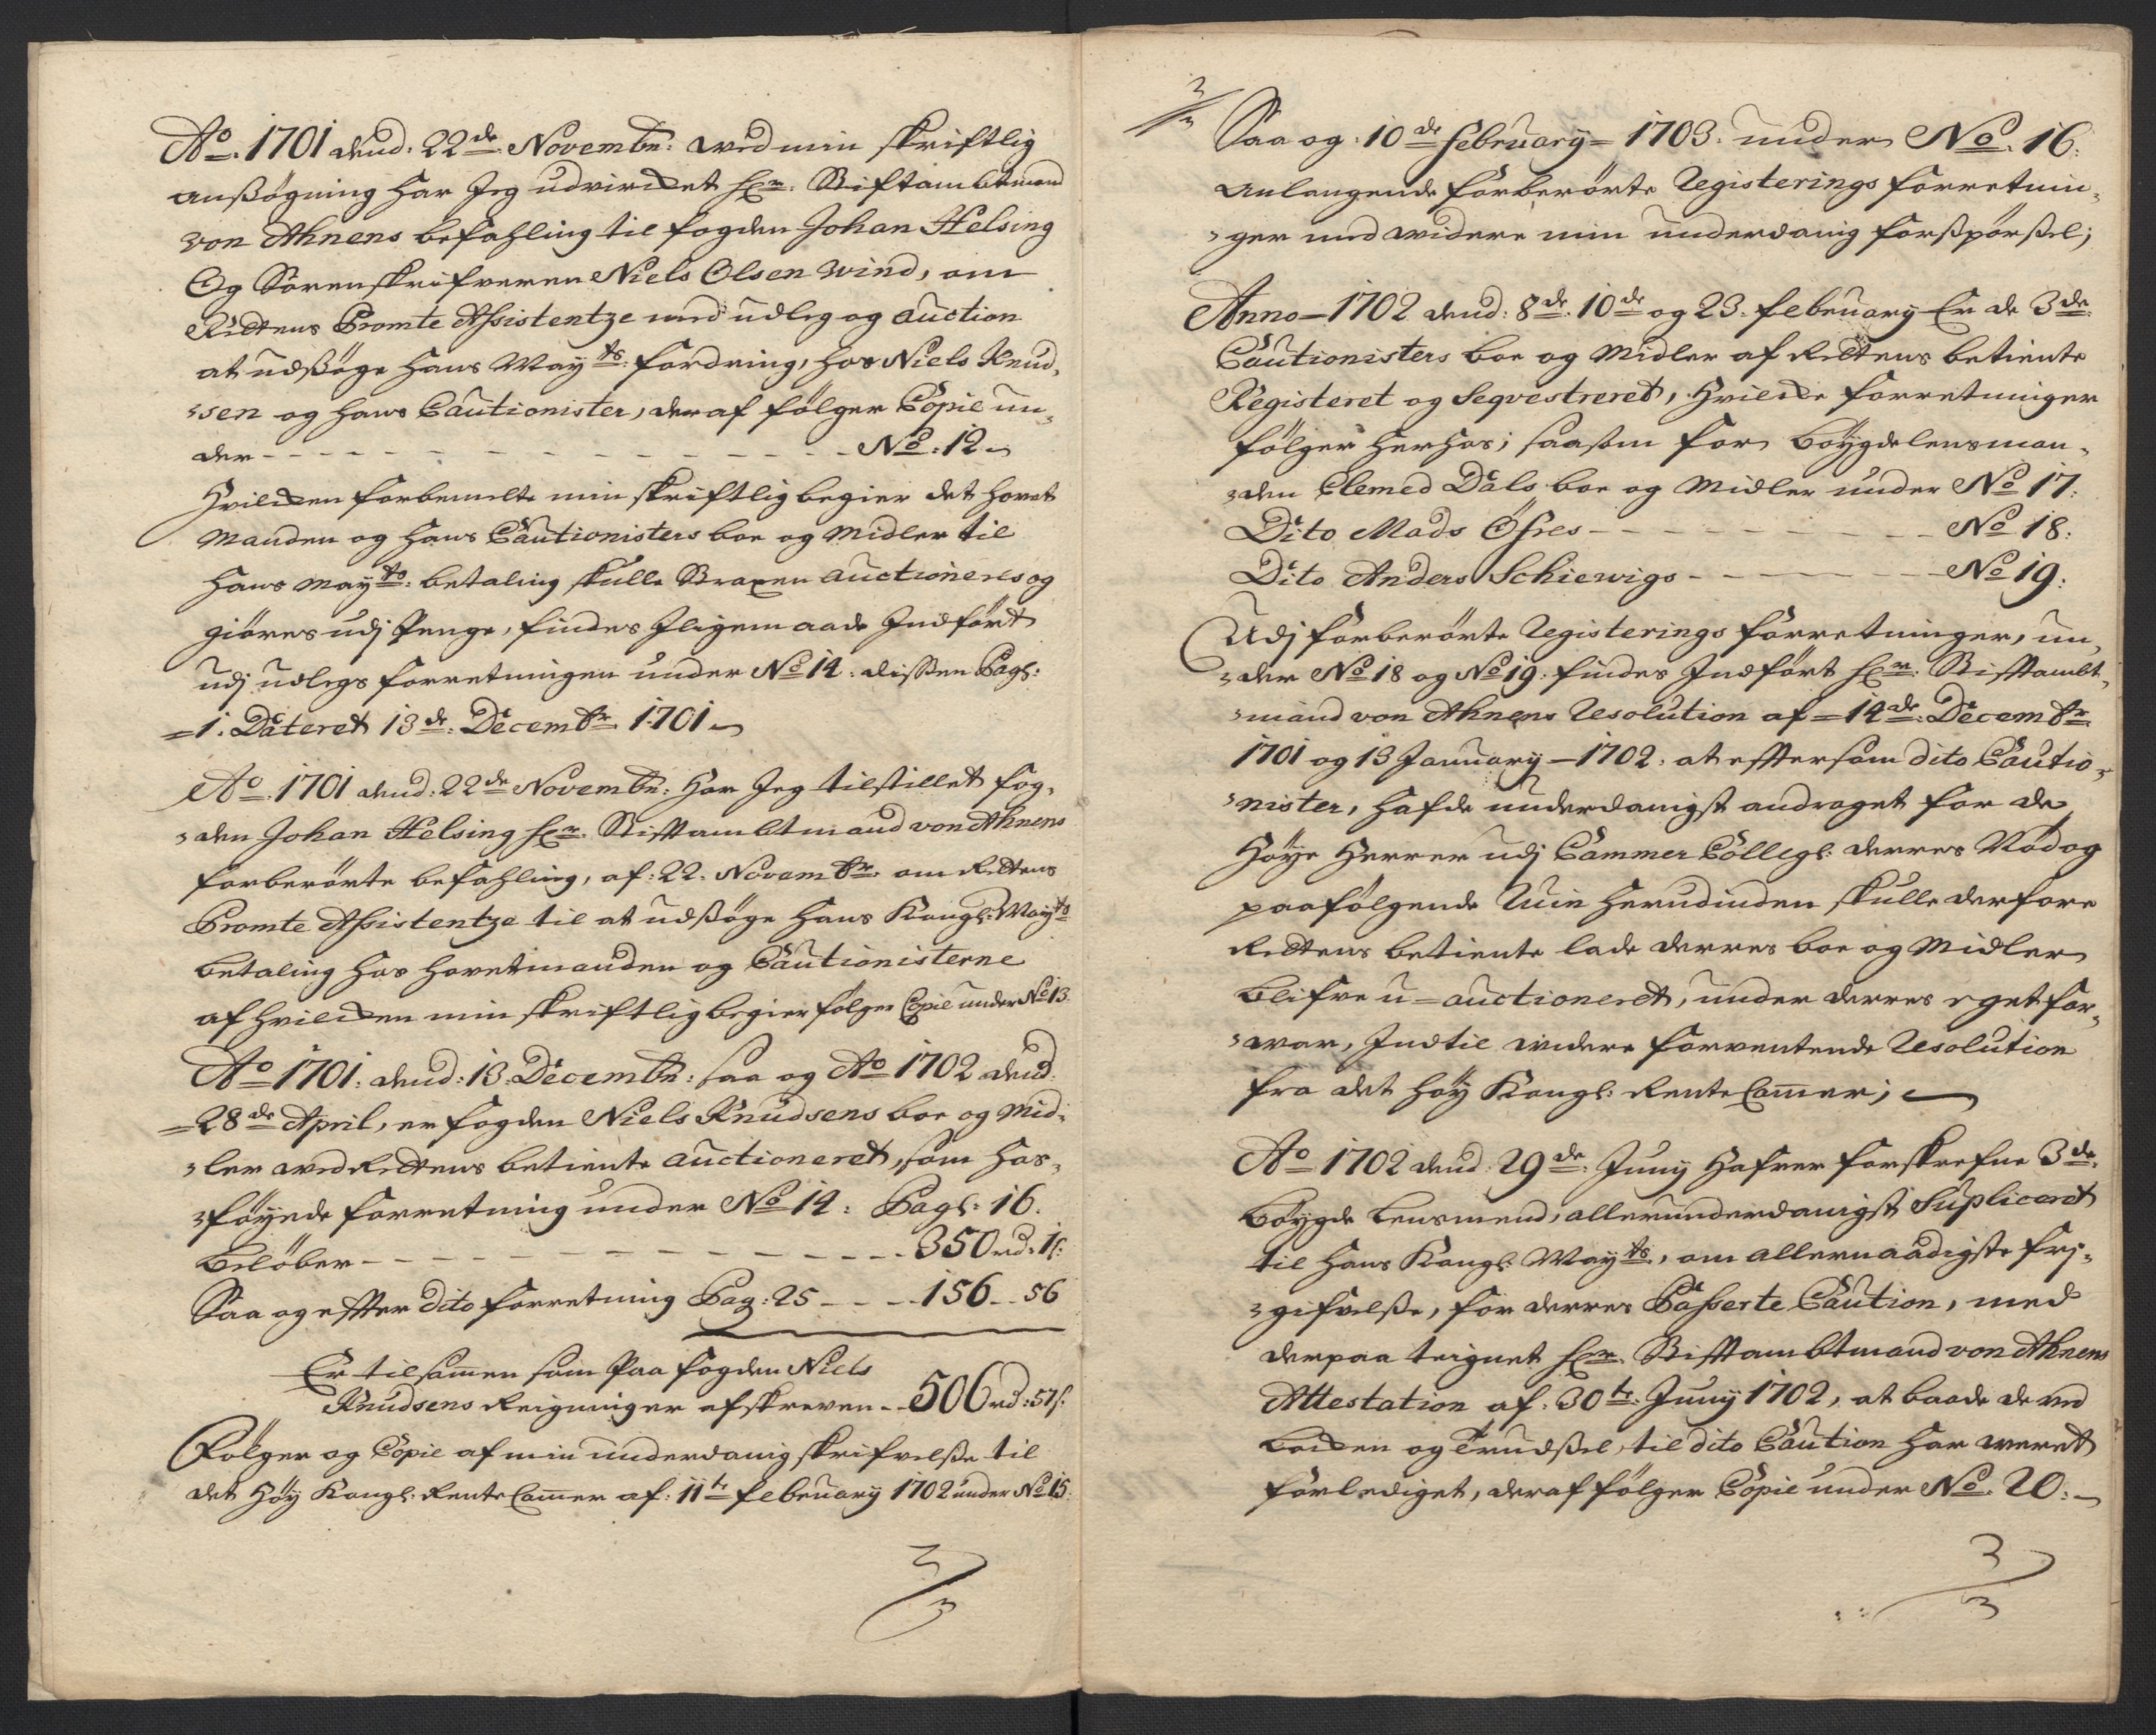 Ao. 1701 dend: 22de: Novembr: wed min skriftlig
anßögning har Jeg udvircket hr: Stiftambtmand
von Ahnens befahling til fogden Johan Helsing
Og Sörenskrifveren Niels Olsen Wind, om
Rettens Promte Assistentze med udleg og auction
at udßöge hans Mayts: fordring, hos Niels Knud-
sen og hans Cautionister, deraf fölger Copie un-
der - - - - - - - - - - No: 12
Hvilcken forbemelte min skriftlig begier det hovet
manden og hans Cautionisters boe og midler til
hans mayts: betaling skulle Straxen auctioneres og
giöres udj Penge, findes Jligemaade Jndfört
udj udlegs forretningen under No 14: dissen Pag:
1. Dateret 13de: Decembr 1701
Ao. 1701 dend: 22de Novembr: Har Jeg tilstillet fog-
den Johan Helsing hr: Stiftambtmand von Ahnens
forberörte befahling, af: 22. Novembr: om Rettens
Promte Assistentze til at udßöge hans Kongl: Mayts
betaling hos hovetmanden og Cautionisterne
af hvilcken min skriftlig begier fölger Copie under No 13
Ao 1701: dend: 13. Decembr: saa og Ao 1702 dend
28de April, er fogden Niels Knudsens boe og mid-
ler wed Rettens betiente auctioneret, som hos-
föyede forretning under No 14: Pag: 16.
Belöber - - - - - - - - 350 rd: 1 s:
Saa og effter dito forretning Pag: 25 - - - 156 - 56
Er tilsamen som Paa fogden Niels
Knudsens Reigninger afskreven - - 506 rd: 57 s:
Fölger og Copie af min underdanig skrifvelße til
det höy Kongl: Rente Camer af: 11te february 1702 under No 15:
Saa og: 10de february 1703: under No. 16:
Anlangende forberörte Registerings forretnin-
ger med widere min underdanig forßpörßel;
Anno 1702 dend: 8de. 10de og 23. february Er de 3de
Cautionisters boe og midler af Rettens betiente
Registeret og Seqvestreret, Hvilcke forretninger
fölger herhos; saasom for böygdelensman-
den Elemed Dals boe og midler under No 17:
Dito Mads Öfres - - - - - - No 18:
Dito Anders Schiewigs - - - - - No 19:
Udj forberörte Registerings forretninger, un-
der No 18 og No 19: findes Jndfört hr: Stifftambt-
mand von Ahnens Resolution af 14de: Decembr
1701 og 13 January 1702: at effterßom dito Cautio-
nister, hafde underdanigst andraget for de
höye Herrer udj Cammer Collegl: derres Nöd og
paafölgende Ruin herudinden skulle derfore
Rettens betiente lade derres boe og midler
blifve u-auctioneret, under derres eget for-
war, Jndtil widere forventende Resolution
fra det höy Kongl: Rente Camer;
Ao 1702 dend: 29de: Juny hafver forskrefne 3de:
böygde lensmend, allerunderdanigst Supliceret
til hans Kongl: Mayts:, om allernaadigste fri-
gifvelße, for derres Passerte Caution, med
derpaa teignet hr: Stifftambtmand von Ahnens
Attestation af: 30te: Juny 1702, at baade de wed
og Trudßel, til dito Caution har weret
forlediget, deraf fölger Copie under No. 20: